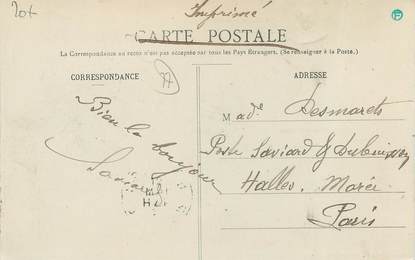 20+
Imprimé
CARTE POSTALE
La Correspondance au recto n'est pas acceptée par tous les Pays Étrangers. (Se renseigner à la Poste.)
CORRESPONDANCE
ADRESSE
Bien le bonjour
Made Desmarets
Poste Saviard &
Halles. Marée
Paris